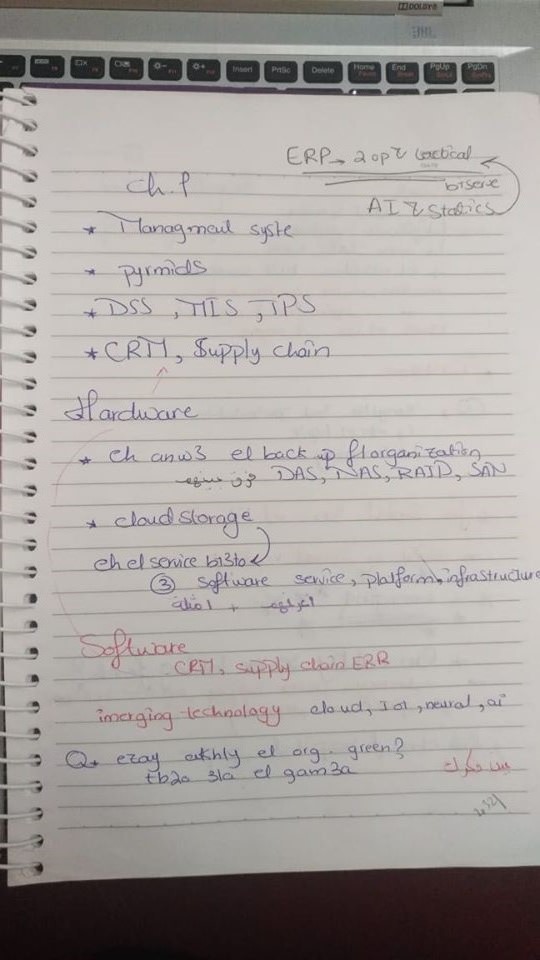 Insert PrtSc Delete Home End PgUp PgDn
ERP → 2 op
biserve
AI & Statics
ch.1
* Managment syste
* pyrmids
* DSS, MIS, TPS
* CRM, Supply chain
Hardware
* eh anw3 el back up f1 organization
فرق بينهم DAS, NAS, RAID, SAN
* cloud storage
eh el service bt3to
③ software service, platform, infrastructure
اعرفهم + امثلة
Software
CRM, supply chain ERR
imerging technology cloud, Iot, neural, ai
Q* ezay el org. green?
tb2o 3la el gam3a